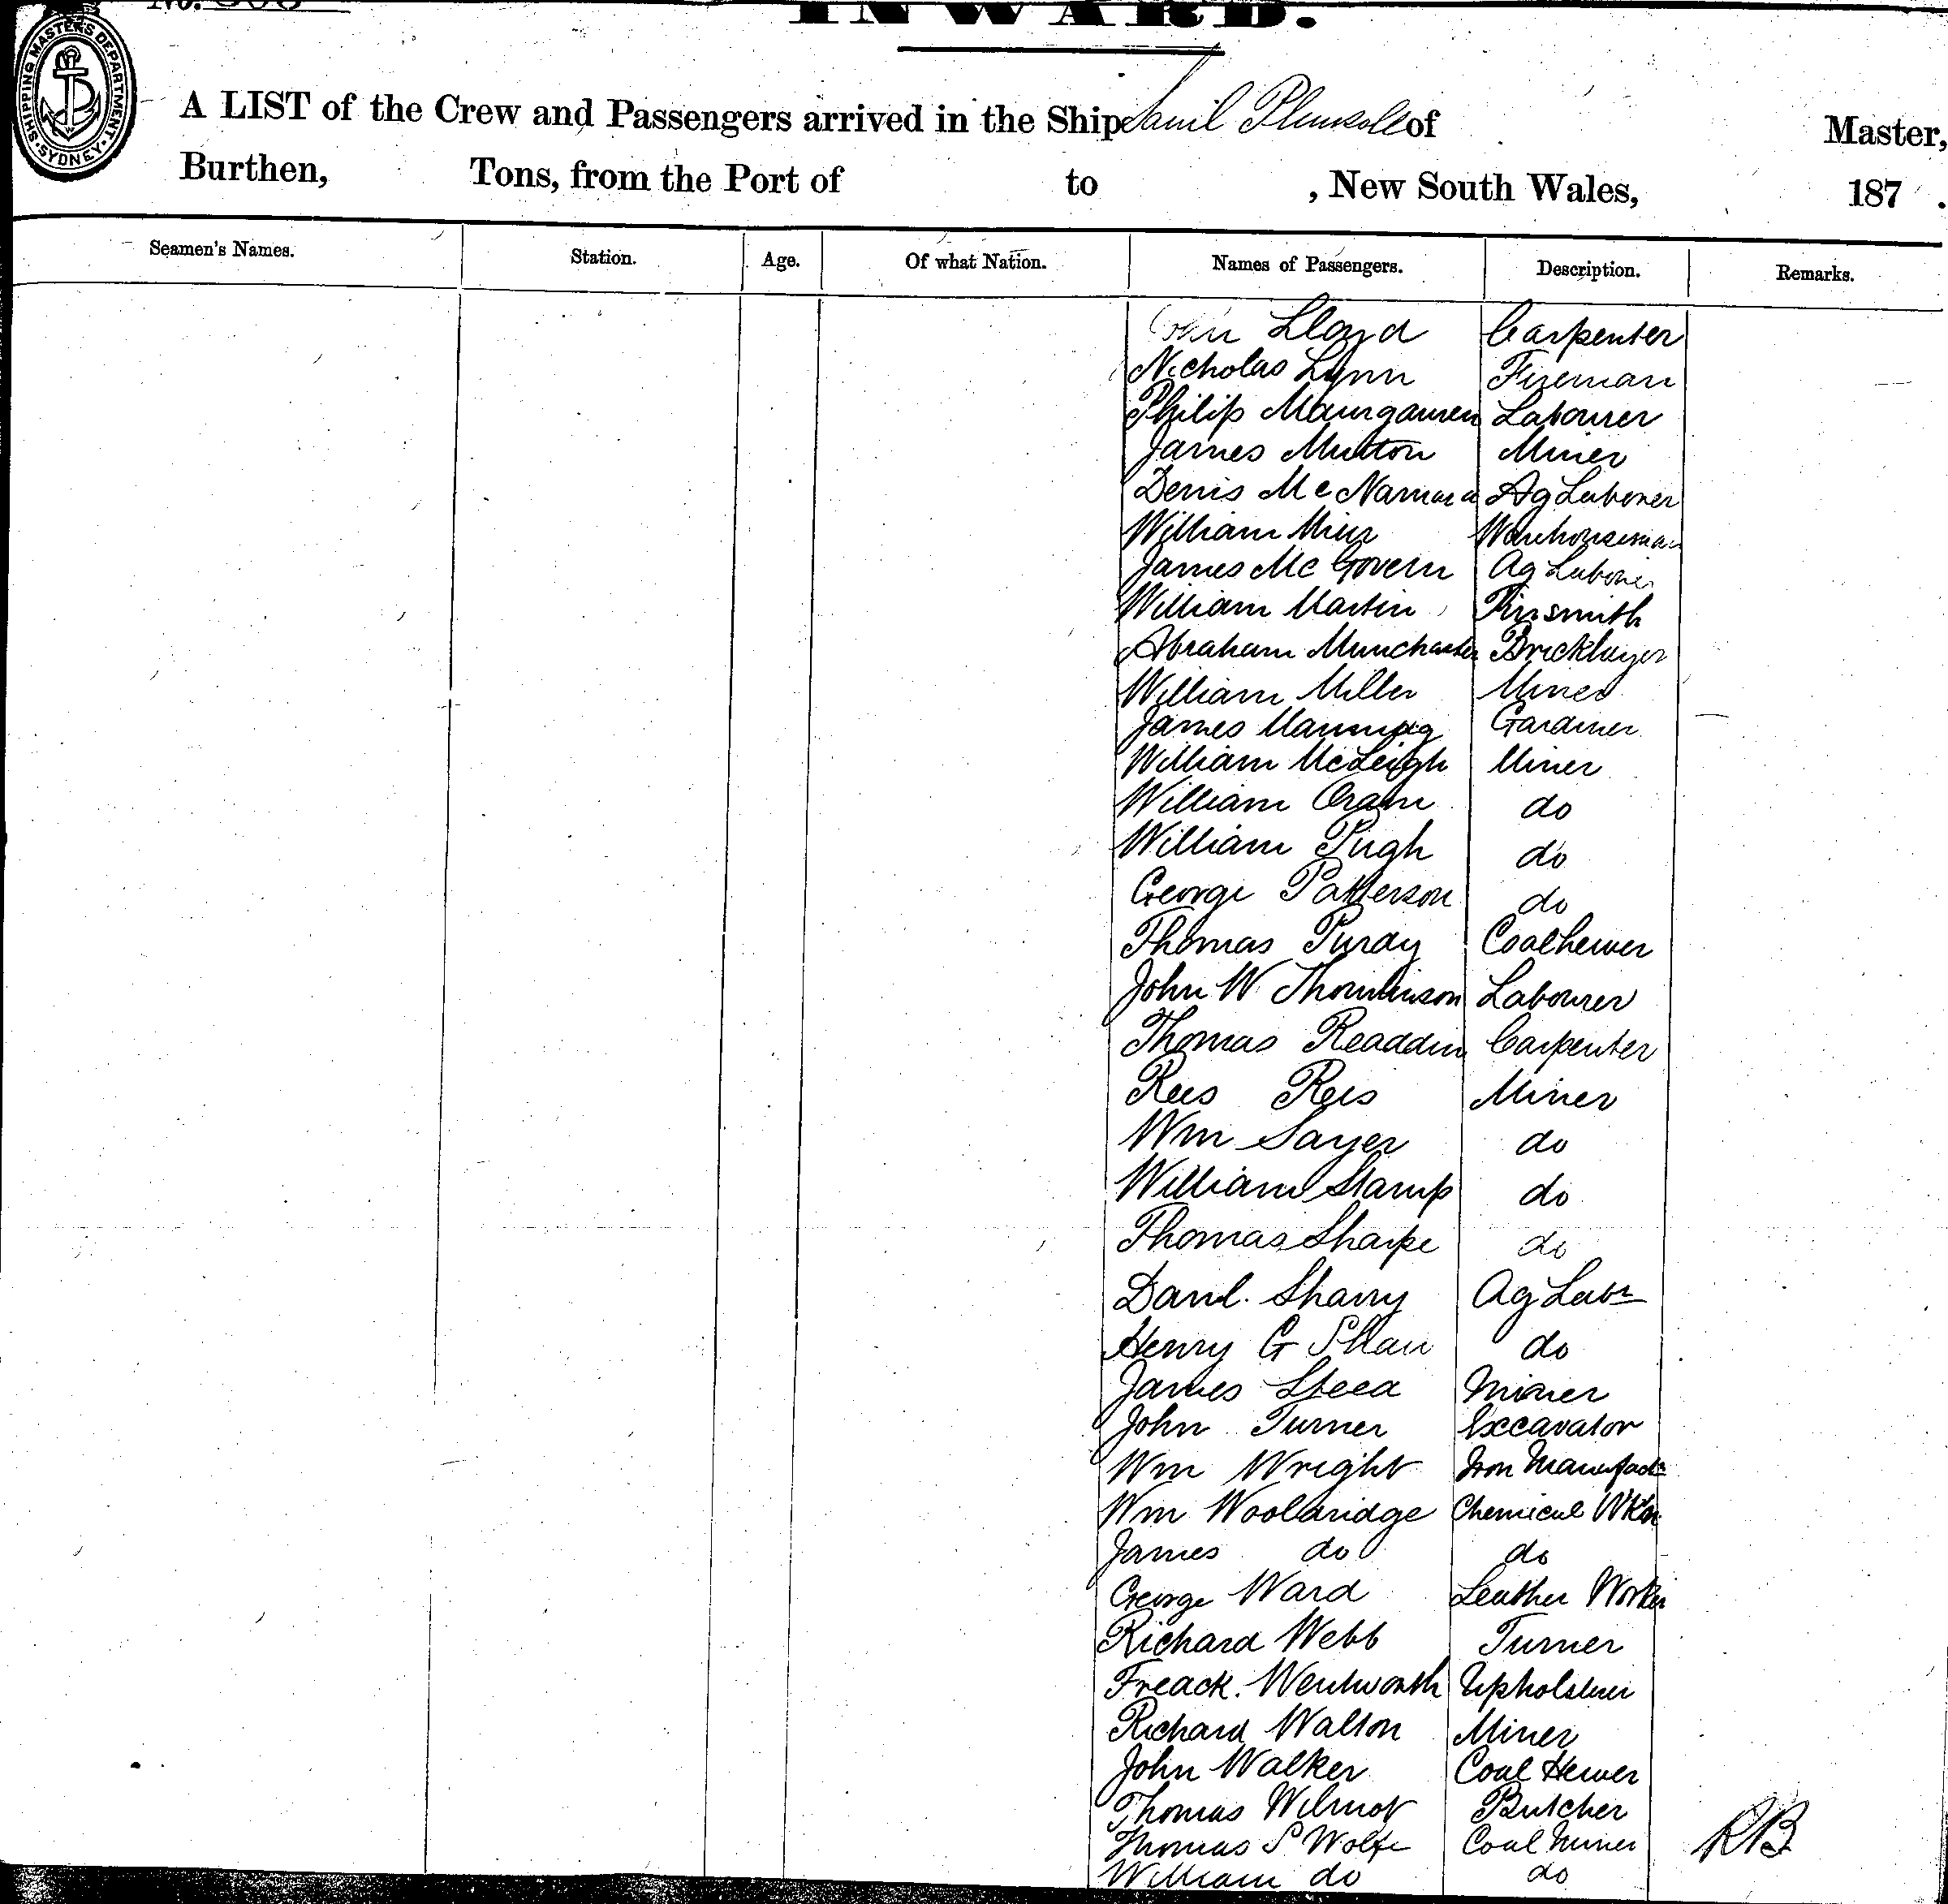 INWARD.
SHIPPING MASTERS DEPARTMENT SYDNEY
A LIST of the Crew and Passengers arrived in the Ship Samil Plimsoll of Master,
Burthen, Tons, from the Port of to , New South Wales, 187 .
Seamen's Names. Station. Age. Of what Nation. Names of Passengers. Description. Remarks.
Lloyd Carpenter
Nicholas Lynn Fireman
Philip Labourer
James Mutton Miner
Denis McNamara Ag Laborer
William Muir Warehouseman
James McGovern Ag Laborer
William Martin Tinsmith
Abraham Munchaster Bricklayer
William Miller Miner
James Manning Gardiner
William McLeigh Miner
William Oram do
William Pugh do
George Patterson do
Thomas Purdy Coalhewer
John W Thomlinson Labourer
Thomas Readdin Carpenter
Rees Rees Miner
Wm Sayer do
William Stamp do
Thomas Sharpe do
Danl. Sharry Ag Labr
Henry G Shaw do
James Steed Miner
John Turner Excavator
Wm Wright Iron Manufactr
Wm Wooldridge Chemical Wkr
James do do
George Ward Leather Worker
Richard Webb Turner
Fredck. Wentworth Upholsterer
Richard Walton Miner
John Walker Coal Hewer
Thomas Wilmot Butcher
Thomas S Wolfe Coal Miner RB
William do do